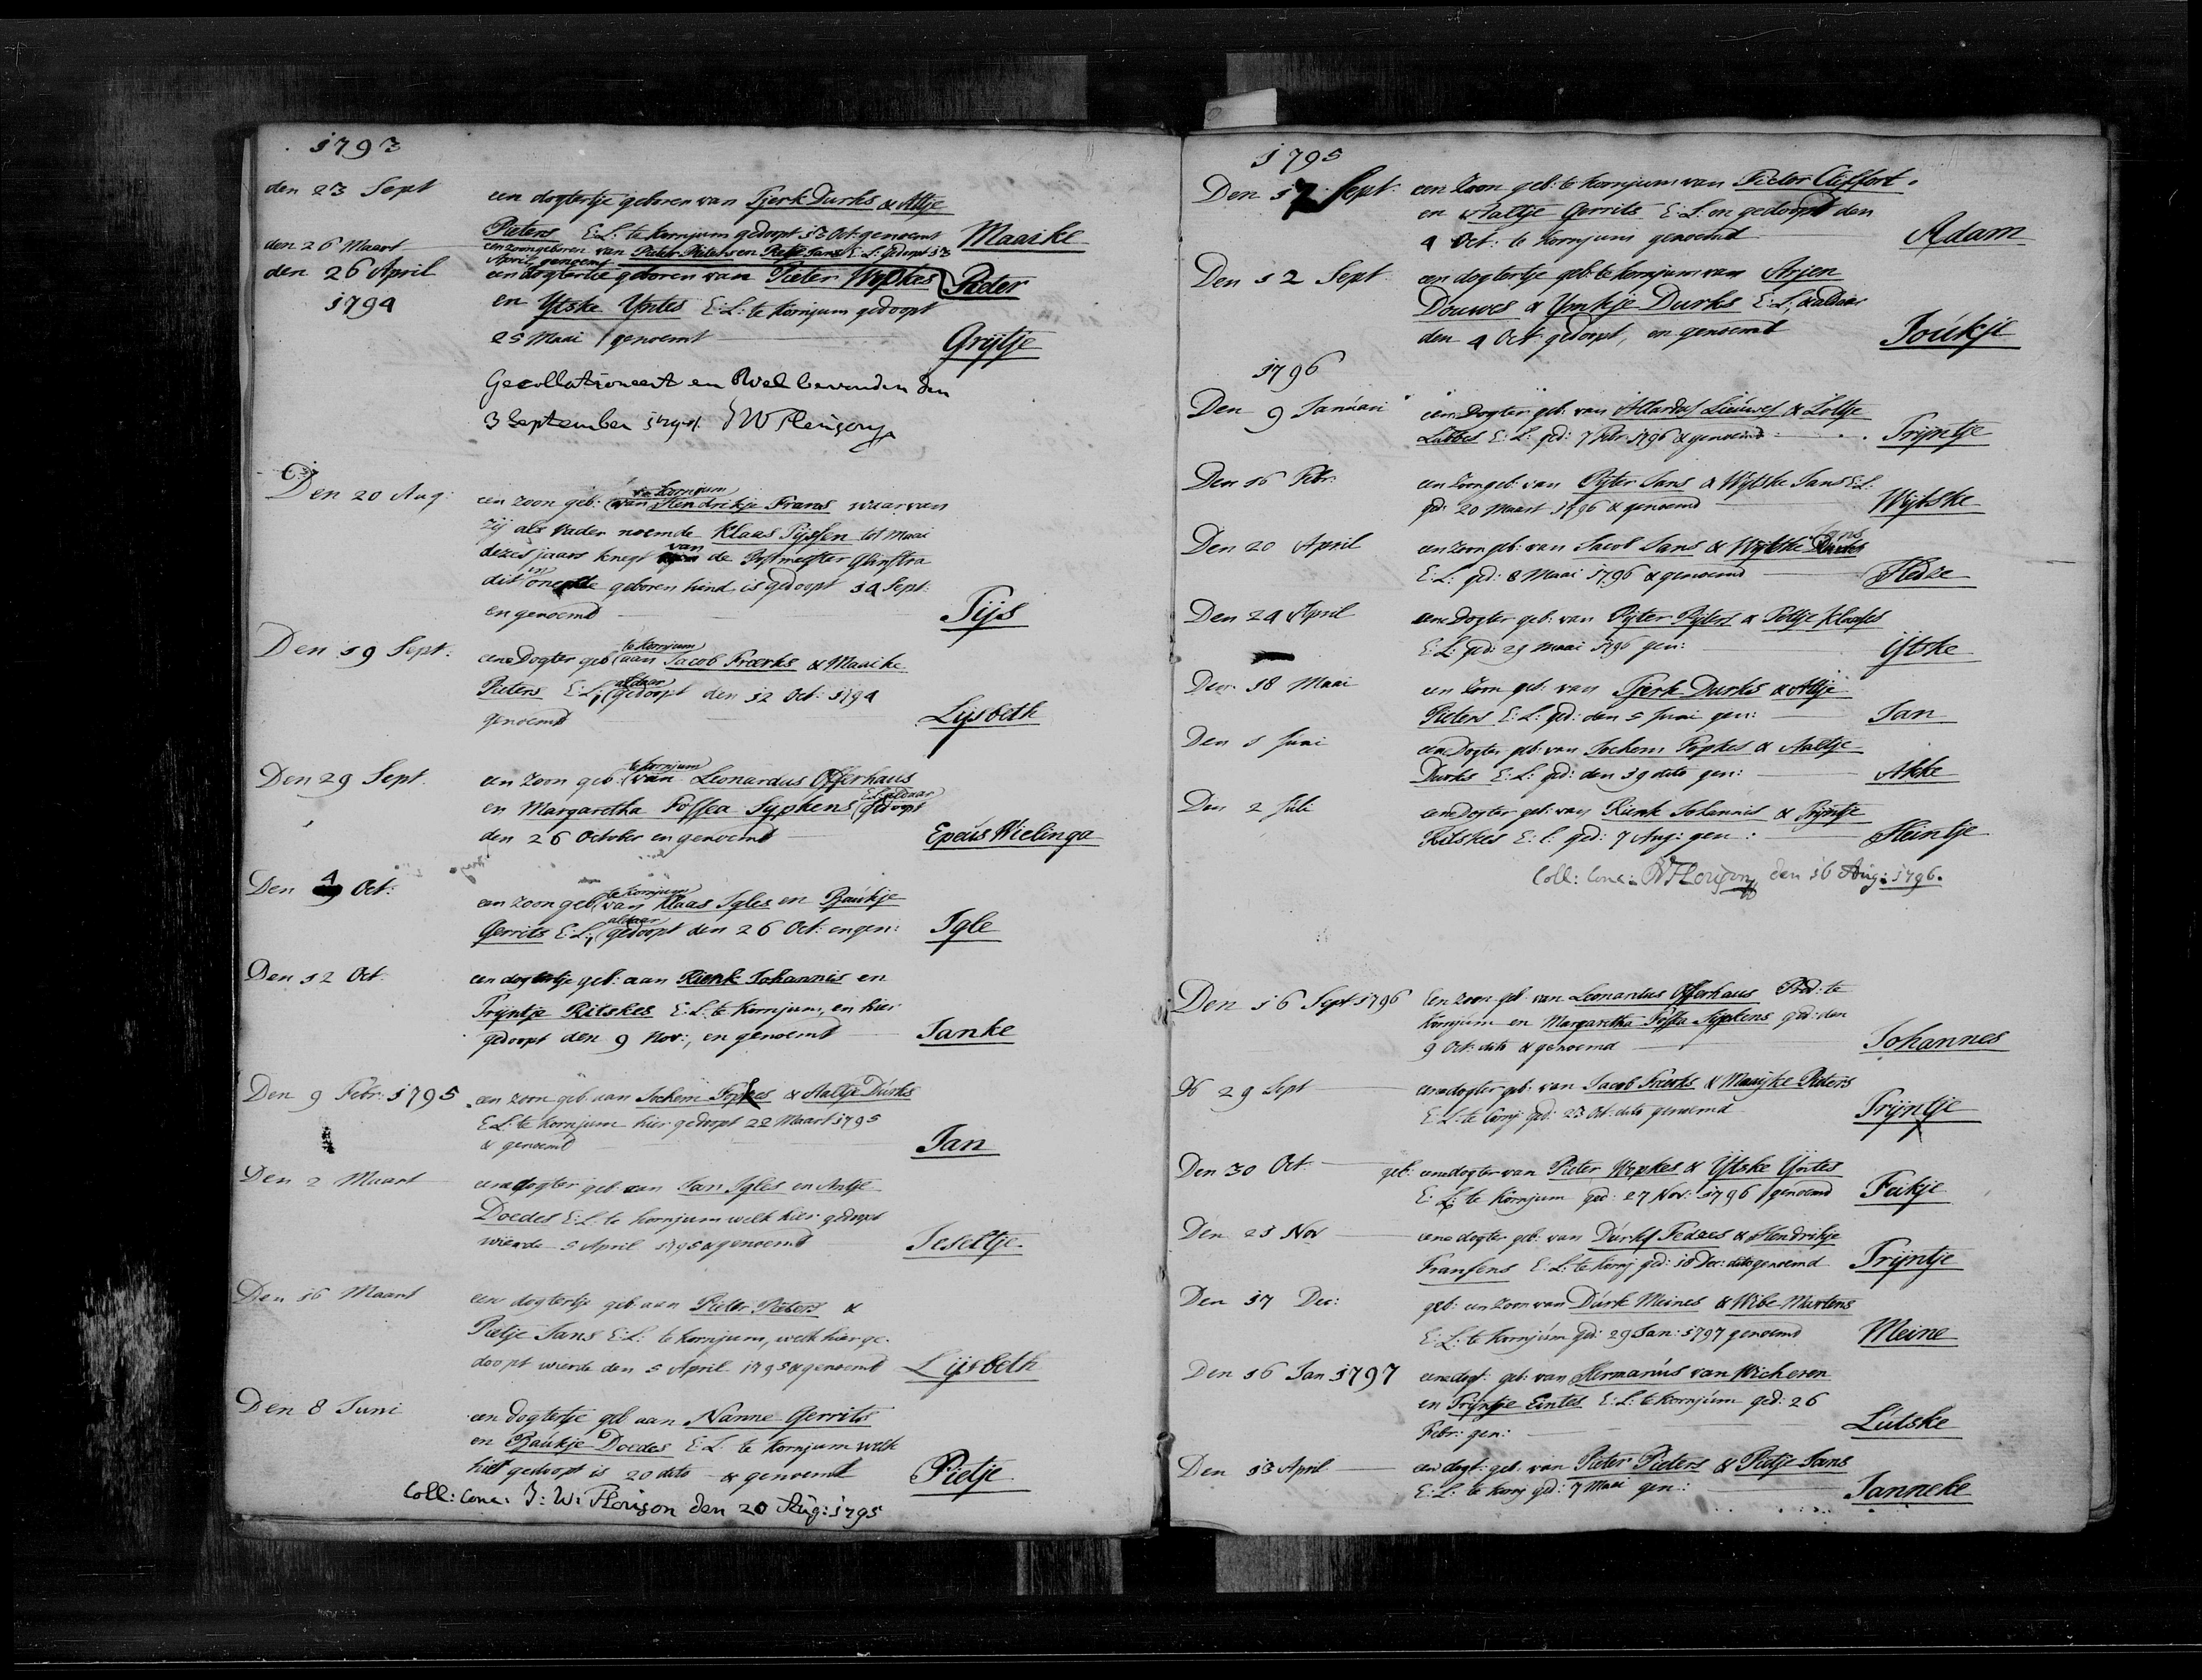 1793
den 23 Sept een dogtertje geboren van Tjerk Durks & Altje
Pieters E:L: te Kornjum gedoopt 13 Oct: genoemt Maaike
den 26 Maart een zoon geboren van Pieter Pieters en Pietje Jans E:L: gedoopt 13
April genoemt Pieter
den 26 April een dogtertje geboren van Pieter Wopkes
1794 en Ytske Yntes E:L: te Kornjum gedoopt
25 Maai genoemt Grijtje
Gecollationeert en Wel bevonden den
3 September 1794.
Den 20 Aug: een zoon geb: te Kornjum van Hendrikje Frans waar van
zij als vader noemde Klaas Tijssen tot Maai
dezes jaars knegt van de Postmeester Glinstra
dit in onegte geboren kind is gedoopt 14 Sept:
en genoemd Tijs
Den 19 Sept. eene Dogter geb te Kornjum aan Jacob Freerks & Maaike
Pieters E:L: aldaar gedoopt den 12 Oct: 1794
genoemd Lijsbeth
Den 29 Sept. een zoon geb: te Kornjum van Leonardus Offerhaus
en Margaretha Fossea Sypkens E:L: aldaar gedoopt
den 26 October en genoemt Epeus Wielinga
Den 4 Oct: een zoon geb te Kornjum van Klaas Igles en Baukje
Gerrits E:L: aldaar gedoopt den 26 Oct: en gen: Igle
Den 12 Oct. een dogtertje geb: aan Rienk Johannis en
Trijntje Ritskes E:L: te Kornjum, en hier
gedoopt den 9 Nov:, en genoemt Janke
Den 9 Febr: 1795 een zoon geb aan Jochem Fopkes & Aaltje Durks
E:L: te Kornjum hier gedoopt 22 Maart 1795
& genoemd Jan
Den 2 Maart eene dogter geb: aan Jan Igles en Antje
Doedes E:L. te Kornjum welk hier gedoopt
wierde 5 April 1795 & genoemd Jeseltje
Den 16 Maart een dogtertje geb: aan Pieter Pieters &
Pietje Jans E:L: te Kornjum, welk hier ge-
doopt wierde den 5 April 1795 & genoemd Lijsbeth
Den 8 Juni een dogtertje geb aan Nanne Gerrits
en Baukje Doedes E:L: te Kornjum welk
hier gedoopt is 20 dito & genoemd Pietje
Coll: Conc: J: W: Plonson den 20 Aug: 1795
1795
Den 17 Sept: een Zoon geb: te Kornjum van Pieter Cliffort.
en Aaltje Gerrits E:L: en gedoopt den
4 Oct: te Kornjum genoemd Adam
Den 12 Sept een dogtertje geb: te Kornjum van Arjen
Douwes & Ymkje Durks E:L, & aldaar
den 4 Oct: gedoopt, en genoemt Joukje
1796
Den 9 Januari eene Dogter geb: van Allardus Lieuwes & Loltje
Lubbes E:L: ged: 7 Febr: 1796 & genoemd Trijntje
Den 16 Febr: een Zoon geb: van Pyter Jans & Wytske Jans E:L:
ged: 20 Maart 1796 & genoemd Wytske
Den 20 April een zoon geb: van Jacob Jans & Wytske Jans
E:L: ged: 8 Maai 1796 & genoemd Hedze
Den 24 April eene Dogter geb: van Pyter Pyters & Poltje Klaases
E:L: ged: 29 Maai 1796 gen: Ytske
Den 18 Maai een Zoon geb: van Tjerk Durks & Altje
Pieters E:L: ged: den 5 Juni gen: Jan
Den 1 Juni eene Dogter geb: van Jochem Fopkes & Aaltje
Durks E:L: ged: den 19 dito gen: Akke
Den 2 Juli eene Dogter geb: van Rienk Johannis & Trijntje
Ritskes E:L: ged: 7 Aug: gen: Heintje
Coll: Conc: den 16 Aug: 1796.
Den 16 Sept 1796 Een Zoon geb van Leonardus Offerhaus Pred: te
Kornjum en Margaretha Fossea Sypkens ged: den
9 Oct: dito & genoemd Johannes
29 Sept eene dogter geb: van Jacob Freerks & Maaijke Pieters
E:L: te Cornj ged: 23 Oct: dito genoemd Trijntje
Den 30 Oct. geb: eene dogter van Pieter Wopkes & Ytske Yntes
E:L: te Kornjum ged: 27 Nov: 1796 genoemd Feikje
Den 23 Nov eene dogter geb: van Durks Fedzes & Hendrikje
Fransens E:L: te Kornj ged: 18 Dec: dito genoemd Trijntje
Den 17 Dec: geb: een zoon van Durk Meines & Wibe Martens
E:L: te Kornjum ged: 29 Jan: 1797 genoemd Meine
Den 16 Jan 1797 eene dogt: geb: van Hermanus van Wicheren
en Trijntje Eintes E:L: te Kornjum ged: 26
Febr: gen: Lutske
Den 13 April een dogt: geb. van Pieter Pieters & Pietje Jans
E:L: te Kornj ged: 7 Maai gen: Janneke